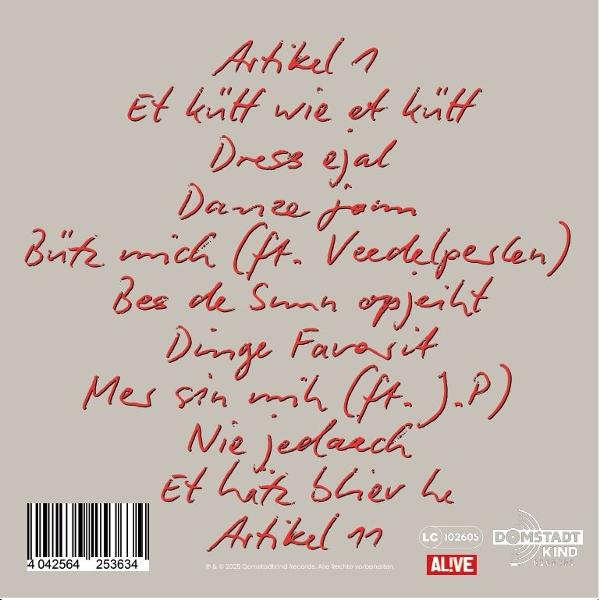 Artikel 1
Et kütt wie et kütt
Dress ejal
Danze jonn
Bütz mich (ft. Veedelperlen)
Bes de Sunn opjeiht
Dinge Favorit
Mer sin mih (ft. J.P)
Nie jedaach
Et hätz bliev he
Artikel 11
4 042564 253634
℗ & © 2025 Domstadtkind Records. Alle Rechte vorbehalten
LC 102605
AL!VE
DOMSTADT
KIND
RECORDS